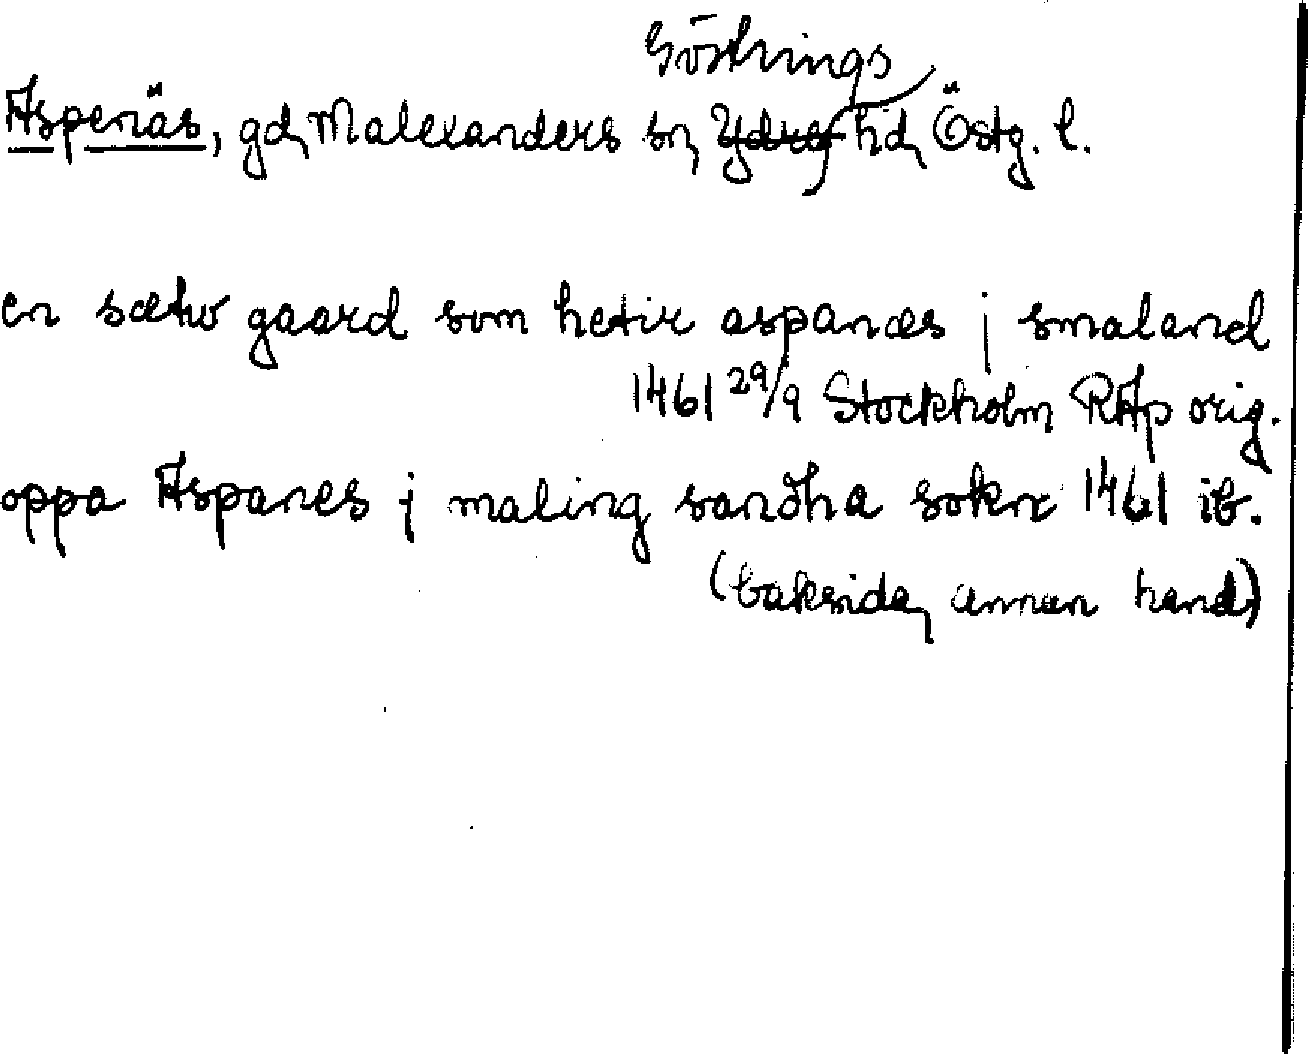 Göstrings
Aspenäs, gd, Malexanders sn, Ydre hd, Östg. l.
en sætw gaard som hetir aspanæs j smaland
1461 29/9 Stockholm RAp orig.
oppa Aspanes j maling sandha sokn 1461 ib.
(baksida, annan hand)